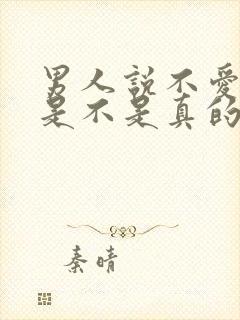 男人说不爱
是不是真的
秦晴